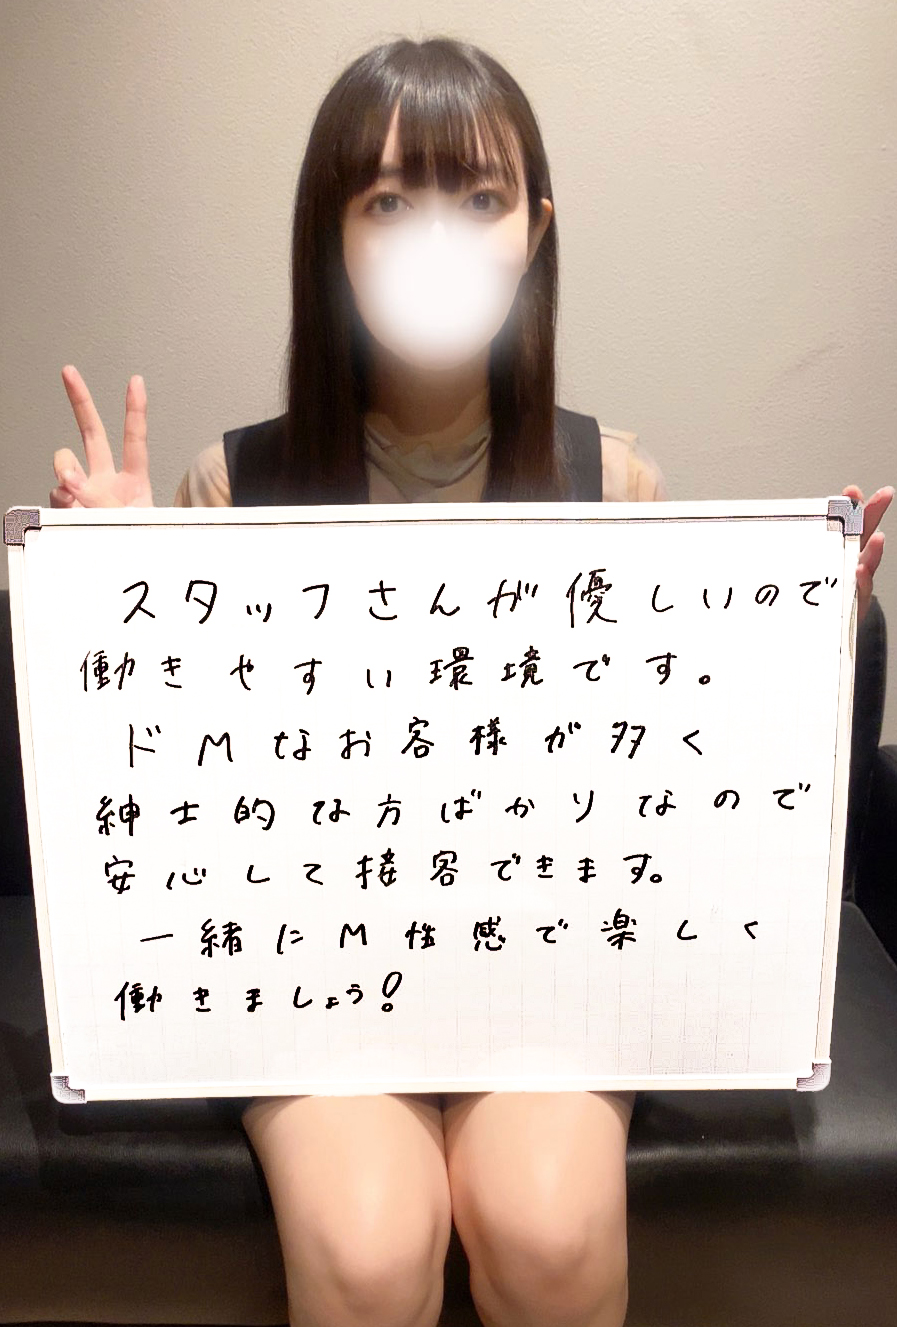 スタッフさんが優しいので
働きやすい環境です。
ドMなお客様が多く
紳士的な方ばかりなので
安心して接客できます。
一緒にM性感で楽しく
働きましょう!